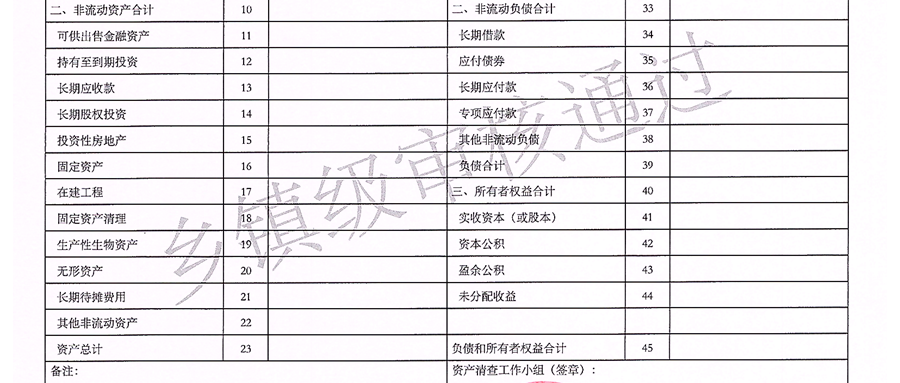 二、非流动资产合计 10 二、非流动负债合计 33
可供出售金融资产 11 长期借款 34
持有至到期投资 12 应付债券 35
长期应收款 13 长期应付款 36
长期股权投资 14 专项应付款 37
投资性房地产 15 其他非流动负债 38
固定资产 16 负债合计 39
在建工程 17 三、所有者权益合计 40
固定资产清理 18 实收资本（或股本） 41
生产性生物资产 19 资本公积 42
无形资产 20 盈余公积 43
长期待摊费用 21 未分配收益 44
其他非流动资产 22
资产总计 23 负债和所有者权益合计 45
备注： 资产清查工作小组（签章）：
乡镇级审核通过